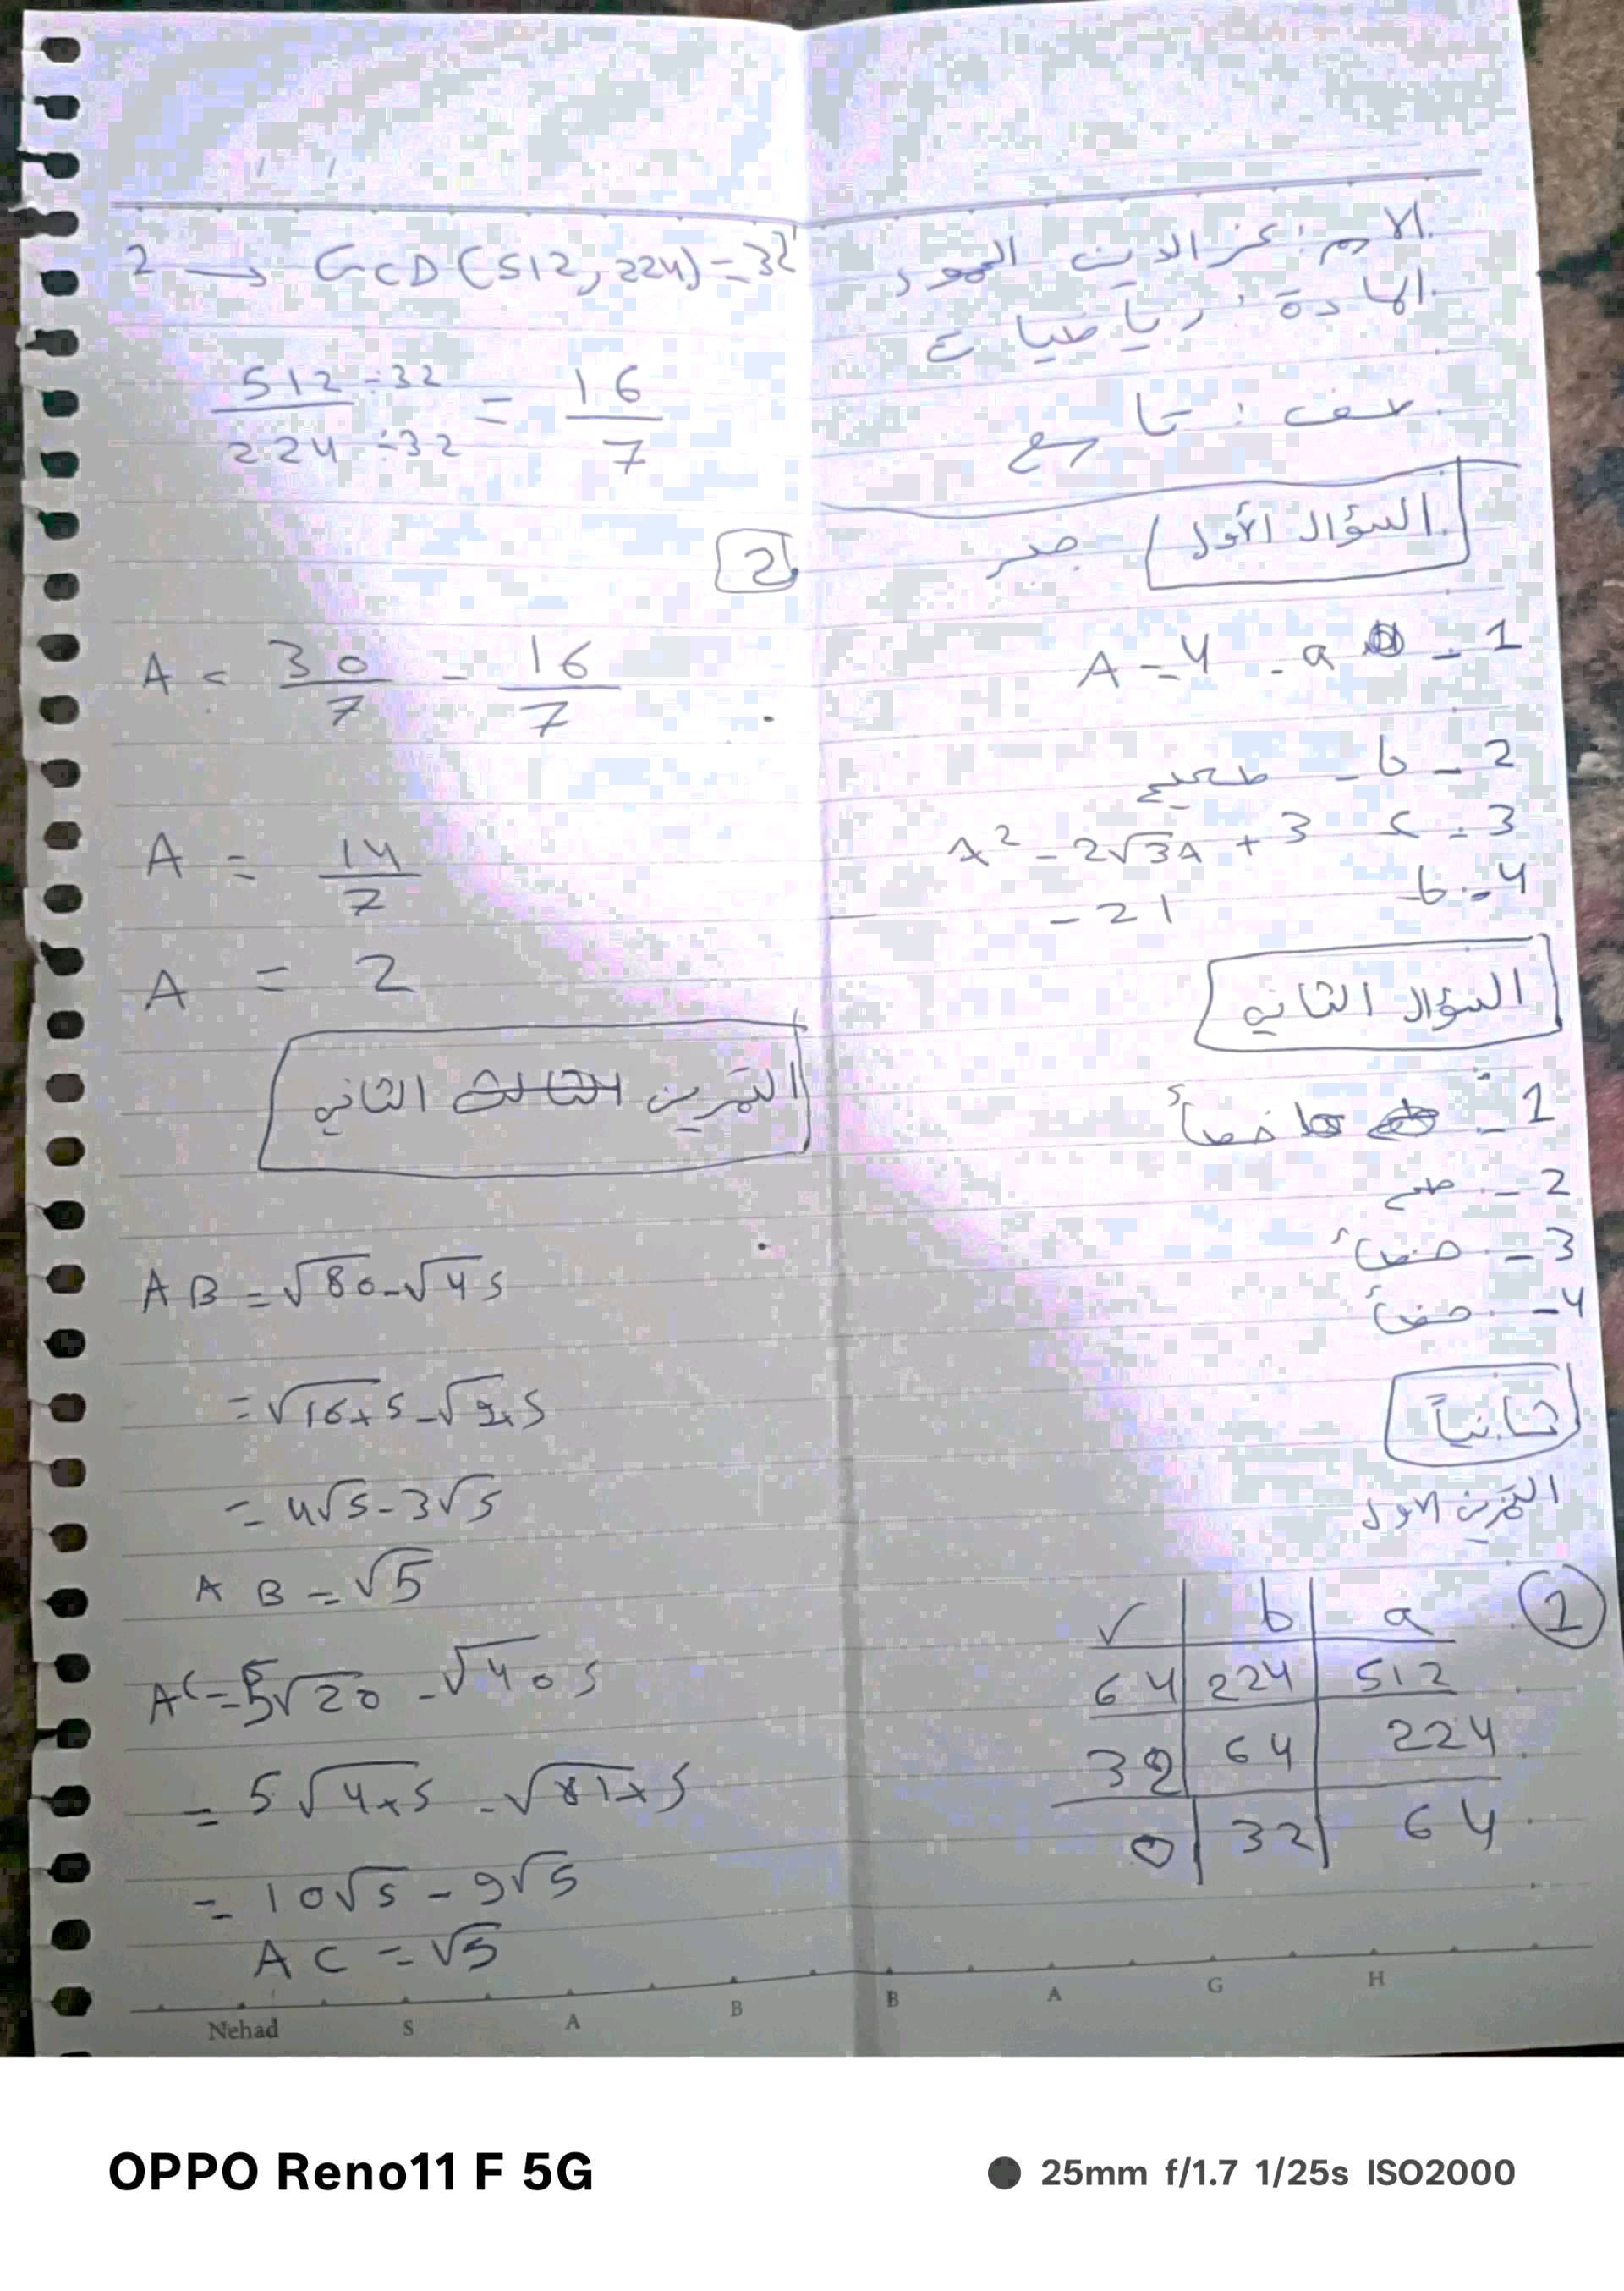 الاسم: عز الدين الحمود
المادة: رياضيات
صف: تاسع
السؤال الأول جبر
1 - a - A = 4
2 - b - صحيح
3 - c A² - 2√3A + 3
4 - b - 21
السؤال الثاني
1 - خطأ
2 - صح
3 - خطأ
4 - خطأ
ثانياً
التمرين الاول
1
a b r
512 224 64
224 64 32
64 32 0
2 → GCD(512, 224) = 32
512 ÷32 / 224 ÷32 = 16/7
2
A = 30/7 - 16/7
A = 14/7
A = 2
التمرين الثاني
AB = √80 - √45
= √16×5 - √9×5
= 4√5 - 3√5
AB = √5
AC = 5√20 - √405
= 5√4×5 - √81×5
= 10√5 - 9√5
AC = √5
Nehad S A B B A G H
OPPO Reno11 F 5G
25mm f/1.7 1/25s ISO2000